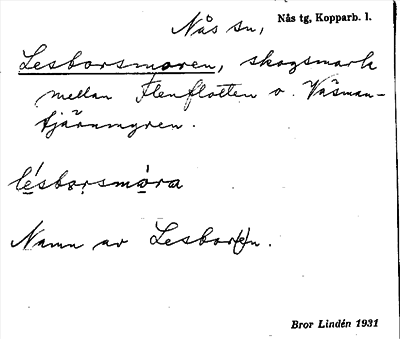 Nås sn, Nås tg, Kopparb. l.
Lesborsmoren, skogsmark
mellan Flenflotten o. Väsman-
tjärnmyren.
lésborsmòra
Namn av Lesbor(e)n.
Bror Lindén 1931